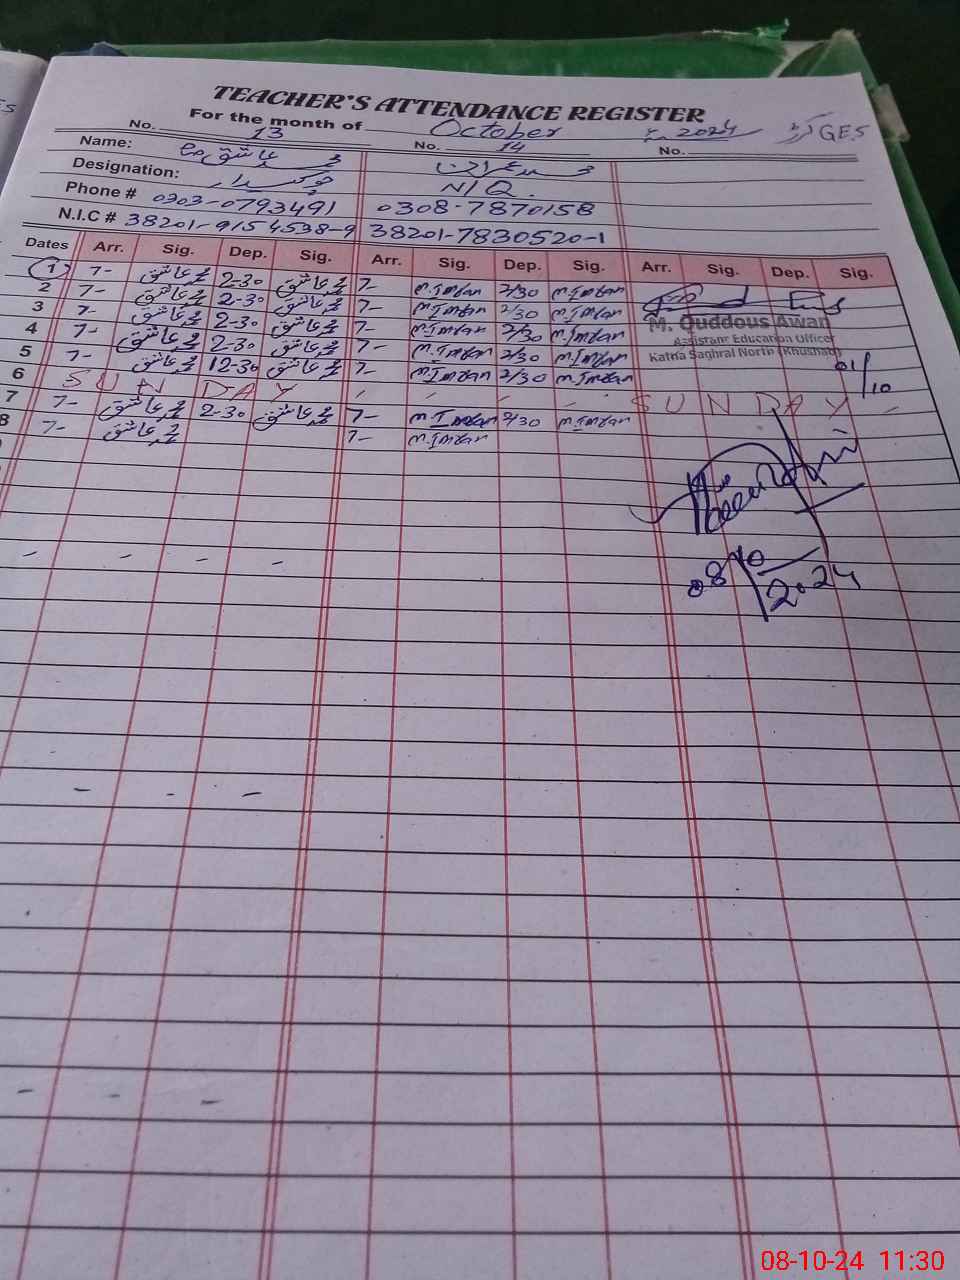 TEACHER'S ATTENDANCE REGISTER
For the month of October 2024 GES
No. 13 No. 14 No.
Name: محمد عاشق محمد عمران
Designation: چوکیدار N/Q.
Phone # 0303-0793491 0308-7870158
N.I.C # 38201-9154538-9 38201-7830520-1
Dates Arr. Sig. Dep. Sig. Arr. Sig. Dep. Sig. Arr. Sig. Dep. Sig.
1 7- محمد عاشق 2-30 محمد عاشق 7- M.Imran 2/30 M.Imran
2 7- محمد عاشق 2-30 محمد عاشق 7- M.Imran 2/30 M.Imran
M. Quddous Awan
3 7- محمد عاشق 2-30 محمد عاشق 7- M.Imran 2/30 M.Imran
Assistant Education Officer
4 7- محمد عاشق 2-30 محمد عاشق 7- M.Imran 2/30 M.Imran
Katha Saghral North (Khushab)
5 7- محمد عاشق 12-30 محمد عاشق 7- M.Imran 2/30 M.Imran
01/10
6 SUNDAY SUNDAY
7 7- محمد عاشق 2-30 محمد عاشق 7- M.Imran 2/30 M.Imran
8 7- محمد عاشق 7- M.Imran
08/10/2024
08-10-24 11:30